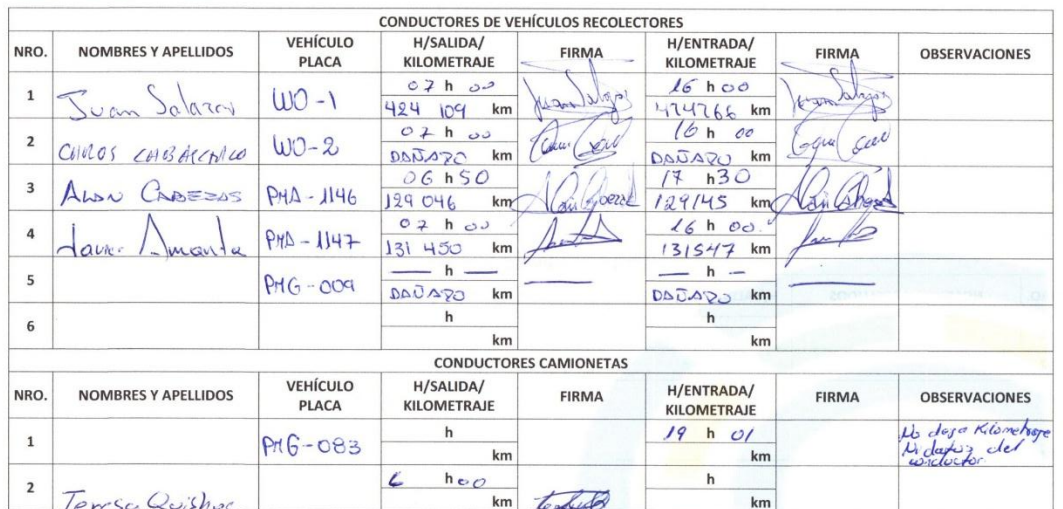 CONDUCTORES DE VEHÍCULOS RECOLECTORES
NRO. NOMBRES Y APELLIDOS VEHÍCULO PLACA H/SALIDA/ KILOMETRAJE FIRMA H/ENTRADA/ KILOMETRAJE FIRMA OBSERVACIONES
1 Juan Salazar WO-1 07 h 00 16 h 00
424 109 km km
2 WO-2 07 h 00 16 h 00
DAÑADO km DAÑADO km
3 ALAN CABEZAS PMA-1146 06 h 50 17 h 30
129 046 km 129145 km
4 Javier Amanta PMA-1147 07 h 00 16 h 00
131 450 km 131547 km
5 PMG-009 — h — — h —
DAÑADO km DAÑADO km
6 h h
km km
CONDUCTORES CAMIONETAS
NRO. NOMBRES Y APELLIDOS VEHÍCULO PLACA H/SALIDA/ KILOMETRAJE FIRMA H/ENTRADA/ KILOMETRAJE FIRMA OBSERVACIONES
1 PMG-083 h 19 h 01 No deja Kilometraje
km km Ni datos del
conductor
2 Teresa Quishpe 6 h 00 h
km km